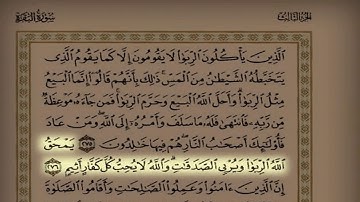 الجزء الثالث
سورة البقرة
ٱلَّذِينَ يَأْكُلُونَ ٱلرِّبَوٰا۟ لَا يَقُومُونَ إِلَّا كَمَا يَقُومُ ٱلَّذِى
يَتَخَبَّطُهُ ٱلشَّيْطَٰنُ مِنَ ٱلْمَسِّ ذَٰلِكَ بِأَنَّهُمْ قَالُوٓا۟ إِنَّمَا ٱلْبَيْعُ
مِثْلُ ٱلرِّبَوٰا۟ وَأَحَلَّ ٱللَّهُ ٱلْبَيْعَ وَحَرَّمَ ٱلرِّبَوٰا۟ فَمَن جَآءَهُۥ مَوْعِظَةٌ
مِّن رَّبِّهِۦ فَٱنتَهَىٰ فَلَهُۥ مَا سَلَفَ وَأَمْرُهُۥٓ إِلَى ٱللَّهِ وَمَنْ عَادَ
فَأُو۟لَٰٓئِكَ أَصْحَٰبُ ٱلنَّارِ هُمْ فِيهَا خَٰلِدُونَ ٢٧٥ يَمْحَقُ
ٱللَّهُ ٱلرِّبَوٰا۟ وَيُرْبِى ٱلصَّدَقَٰتِ وَٱللَّهُ لَا يُحِبُّ كُلَّ كَفَّارٍ أَثِيمٍ ٢٧٦
إِنَّ ٱلَّذِينَ ءَامَنُوا۟ وَعَمِلُوا۟ ٱلصَّٰلِحَٰتِ وَأَقَامُوا۟ ٱلصَّلَوٰةَ